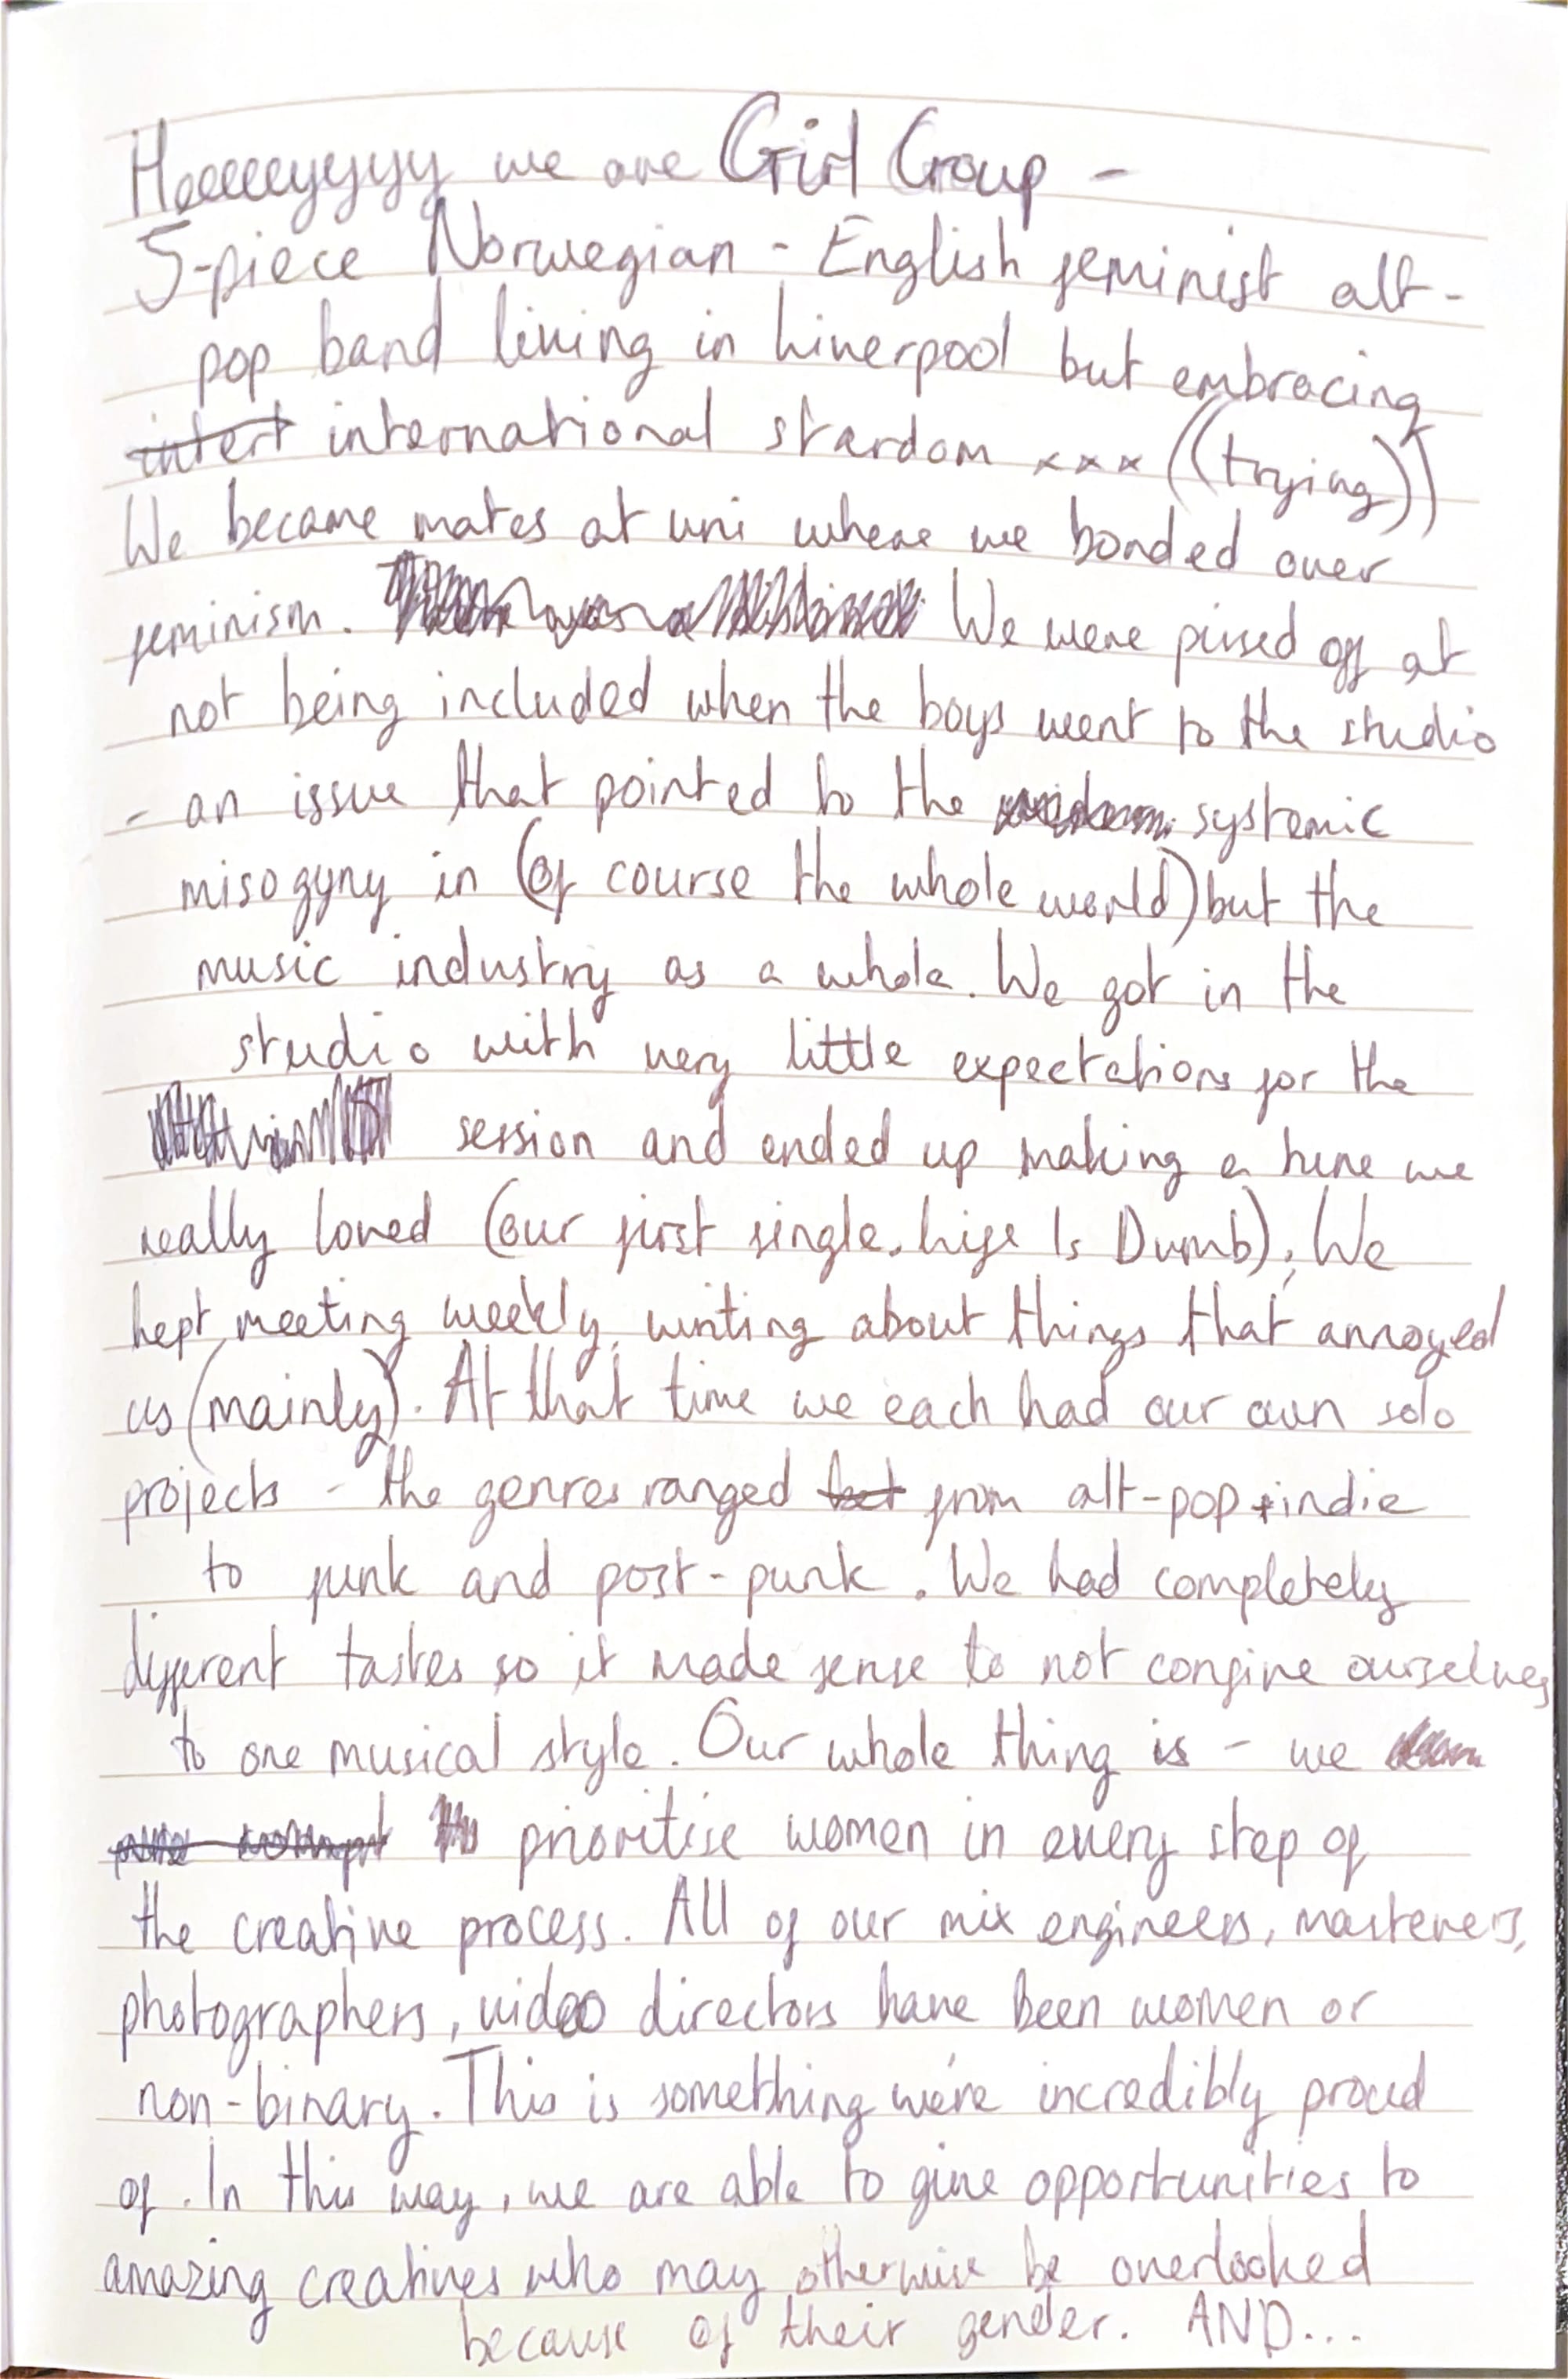 Heeeeeyyyyy we are Girl Group -
5-piece Norwegian - English feminist alt-
pop band living in Liverpool but embracing
intert international stardom xxx ((trying))
We became mates at uni where we bonded over
feminism. We were pissed off at
not being included when the boys went to the studio
- an issue that pointed to the systemic
misogyny in (of course the whole world) but the
music industry as a whole. We got in the
studio with very little expectations for the
session and ended up making a tune we
really loved (our first single, Life Is Dumb). We
kept meeting weekly, writing about things that annoyed
us (mainly). At that time we each had our own solo
projects - the genres ranged bet from alt-pop + indie
to funk and post-punk. We had completely
different tastes so it made sense to not confine ourselves
to one musical style. Our whole thing is - we
prioritise women in every step of
the creative process. All of our mix engineers, masterers,
photographers, video directors have been women or
non-binary. This is something we're incredibly proud
of. In this way, we are able to give opportunities to
amazing creatives who may otherwise be overlooked
because of their gender. AND...